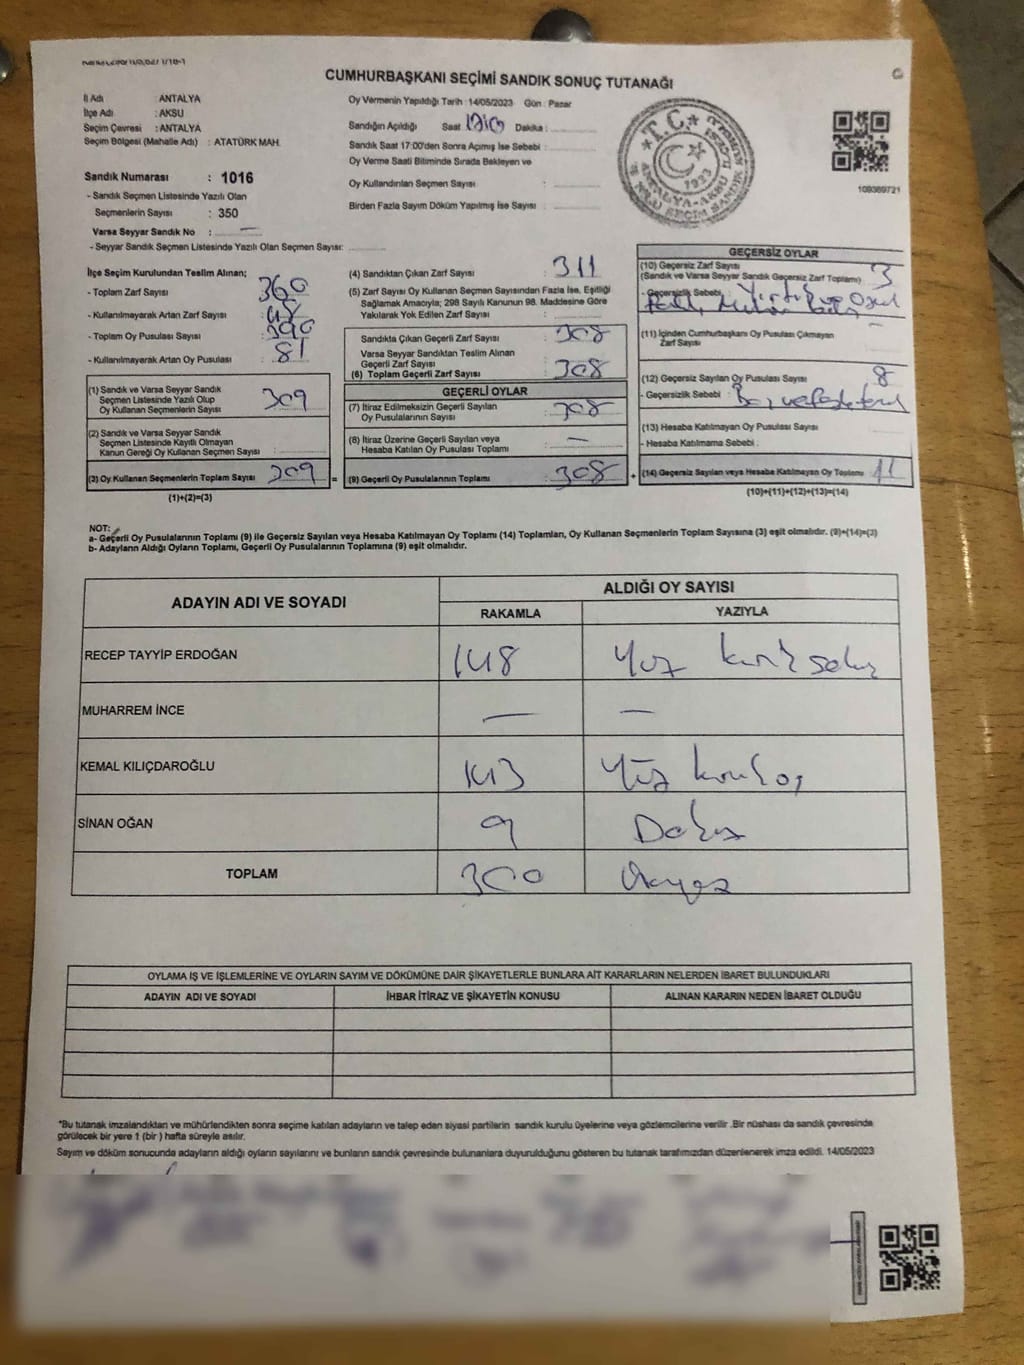 CUMHURBAŞKANI SEÇİMİ SANDIK SONUÇ TUTANAĞI
İl Adı : ANTALYA
İlçe Adı : AKSU
Seçim Çevresi : ANTALYA
Seçim Bölgesi (Mahalle Adı) : ATATÜRK MAH.
Sandık Numarası : 1016
- Sandık Seçmen Listesinde Yazılı Olan
Seçmenlerin Sayısı : 350
Varsa Seyyar Sandık No : —
- Seyyar Sandık Seçmen Listesinde Yazılı Olan Seçmen Sayısı:
Oy Vermenin Yapıldığı Tarih : 14/05/2023 Gün : Pazar
Sandığın Açıldığı Saat Dakika :
Sandık Saat 17:00'den Sonra Açımış İse Sebebi :
Oy Verme Saati Bitiminde Sırada Bekleyen ve
Oy Kullandırılan Seçmen Sayısı :
Birden Fazla Sayım Döküm Yapılmış İse Sayısı :
T.C.
1923
109369721
İlçe Seçim Kurulundan Teslim Alınan;
- Toplam Zarf Sayısı : 360
- Kullanılmayarak Artan Zarf Sayısı : 48
- Toplam Oy Pusulası Sayısı : 390
- Kullanılmayarak Artan Oy Pusulası : 81
(1) Sandık ve Varsa Seyyar Sandık
Seçmen Listesinde Yazılı Olup
Oy Kullanan Seçmenlerin Sayısı : 309
(2) Sandık ve Varsa Seyyar Sandık
Seçmen Listesinde Kayıtlı Olmayan
Kanun Gereği Oy Kullanan Seçmen Sayısı :
(3) Oy Kullanan Seçmenlerin Toplam Sayısı : 309
(1)+(2)=(3)
(4) Sandıktan Çıkan Zarf Sayısı : 311
(5) Zarf Sayısı Oy Kullanan Seçmen Sayısından Fazla ise, Eşitliği
Sağlamak Amacıyla; 298 Sayılı Kanunun 98. Maddesine Göre
Yakılarak Yok Edilen Zarf Sayısı :
Sandıkta Çıkan Geçerli Zarf Sayısı : 308
Varsa Seyyar Sandıktan Teslim Alınan
Geçerli Zarf Sayısı :
(6) Toplam Geçerli Zarf Sayısı : 308
GEÇERLİ OYLAR
(7) İtiraz Edilmeksizin Geçerli Sayılan
Oy Pusulalarının Sayısı : 308
(8) İtiraz Üzerine Geçerli Sayılan veya
Hesaba Katılan Oy Pusulası Toplamı : —
= (9) Geçerli Oy Pusulalarının Toplamı : 308
GEÇERSİZ OYLAR
(10) Geçersiz Zarf Sayısı
(Sandık ve Varsa Seyyar Sandık Geçersiz Zarf Toplamı) : 3
- Geçersizlik Sebebi :
(11) İçinden Cumhurbaşkanı Oy Pusulası Çıkmayan
Zarf Sayısı : —
(12) Geçersiz Sayılan Oy Pusulası Sayısı : 8
- Geçersizlik Sebebi :
(13) Hesaba Katılmayan Oy Pusulası Sayısı :
- Hesaba Katılmama Sebebi :
+ (14) Geçersiz Sayılan veya Hesaba Katılmayan Oy Toplamı : 11
(10)+(11)+(12)+(13)=(14)
NOT:
a- Geçerli Oy Pusulalarının Toplamı (9) ile Geçersiz Sayılan veya Hesaba Katılmayan Oy Toplamı (14) Toplamları, Oy Kullanan Seçmenlerin Toplam Sayısına (3) eşit olmalıdır. (9)+(14)=(3)
b- Adayların Aldığı Oyların Toplamı, Geçerli Oy Pusulalarının Toplamına (9) eşit olmalıdır.
ADAYIN ADI VE SOYADI
ALDIĞI OY SAYISI
RAKAMLA YAZIYLA
RECEP TAYYİP ERDOĞAN 148 Yüz kırk sekiz
MUHARREM İNCE — —
KEMAL KILIÇDAROĞLU 143 Yüz kırk üç
SİNAN OĞAN 9 Dokuz
TOPLAM 300 Üçyüz
OYLAMA İŞ VE İŞLEMLERİNE VE OYLARIN SAYIM VE DÖKÜMÜNE DAİR ŞİKAYETLERLE BUNLARA AİT KARARLARIN NELERDEN İBARET BULUNDUKLARI
ADAYIN ADI VE SOYADI İHBAR İTİRAZ VE ŞİKAYETİN KONUSU ALINAN KARARIN NEDEN İBARET OLDUĞU
*Bu tutanak imzalandıktan ve mühürlendikten sonra seçime katılan adayların ve talep eden siyasi partilerin sandık kurulu üyelerine veya gözlemcilerine verilir .Bir nüshası da sandık çevresinde
görülecek bir yere 1 (bir ) hafta süreyle asılır.
Sayım ve döküm sonucunda adayların aldığı oyların sayılarını ve bunların sandık çevresinde bulunanlara duyurulduğunu gösteren bu tutanak tarafımızdan düzenlenerek imza edildi. 14/05/2023